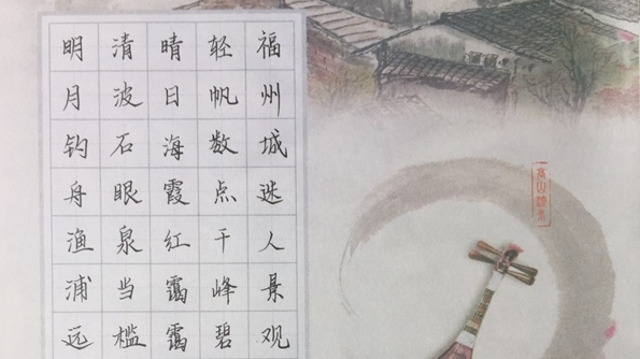 福州城迷人景观
轻帆数点千峰碧
晴日海霞红霭霭
清波石眼泉当槛
明月钓舟渔浦远
高山